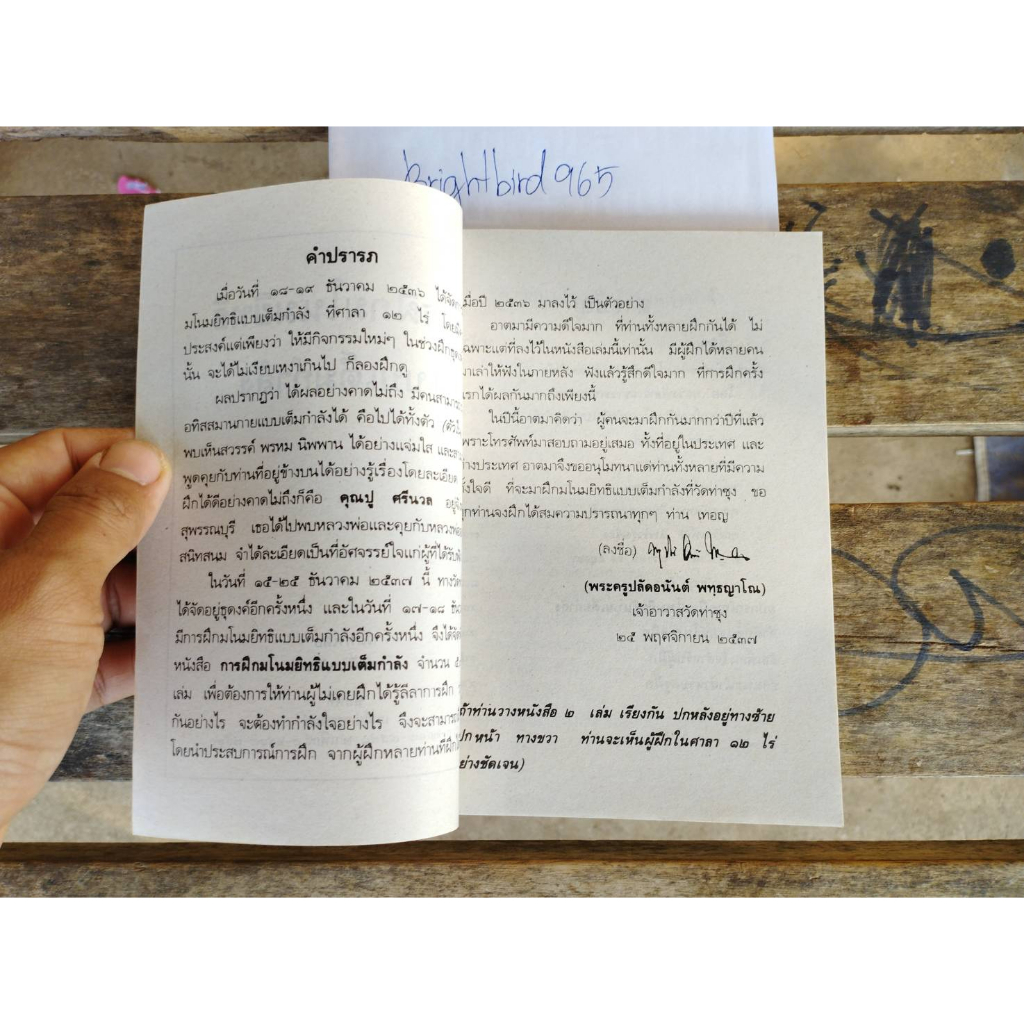 Brightbird 965
คำปรารภ
เมื่อวันที่ ๑๘-๑๙ ธันวาคม ๒๕๓๖ ได้จัด
มโนมยิทธิแบบเต็มกำลัง ที่ศาลา ๑๒ ไร่
ประสงค์แต่เพียงว่า ให้มีกิจกรรมใหม่ๆ ในช่วงฝึก
นั้น จะได้ไม่เงียบเหงาเกินไป ก็ลองฝึกดู
ผลปรากฏว่า ได้ผลอย่างคาดไม่ถึง มีคนสามาร
อทิสสมานกายแบบเต็มกำลังได้ คือไปได้ทั้งตัว
พบเห็นสวรรค์ พรหม นิพพาน ได้อย่างแจ่มใส และ
พูดคุยกับท่านที่อยู่ข้างบนได้อย่างรู้เรื่องโดยละเอียด
ฝึกได้ดีอย่างคาดไม่ถึงก็คือ คุณปู ศรีนวล อยู่
สุพรรณบุรี เธอได้ไปพบหลวงพ่อและคุยกับหลวงพ่อ
สนิทสนม จำได้ละเอียดเป็นที่อัศจรรย์ใจแก่ผู้ที่ได้รับ
ในวันที่ ๑๕-๒๕ ธันวาคม ๒๕๓๗ นี้ ทางวัด
ได้จัดอยู่ธุดงค์อีกครั้งหนึ่ง และในวันที่ ๑๗-๑๘ ธัน
มีการฝึกมโนมยิทธิแบบเต็มกำลังอีกครั้งหนึ่ง จึงได้จัด
หนังสือ การฝึกมโนมยิทธิแบบเต็มกำลัง จำนวน
เล่ม เพื่อต้องการให้ท่านผู้ไม่เคยฝึกได้รู้ลีลาการฝึก
กันอย่างไร จะต้องทำกำลังใจอย่างไร จึงจะสามาร
โดยนำประสบการณ์การฝึก จากผู้ฝึกหลายท่านที่ฝึก
มื่อปี ๒๕๓๖ มาลงไว้ เป็นตัวอย่าง
อาตมามีความดีใจมาก ที่ท่านทั้งหลายฝึกกันได้ ไม่
ฉพาะแต่ที่ลงไว้ในหนังสือเล่มนี้เท่านั้น มีผู้ฝึกได้หลายคน
าเล่าให้ฟังในภายหลัง ฟังแล้วรู้สึกดีใจมาก ที่การฝึกครั้ง
รกได้ผลกันมากถึงเพียงนี้
ในปีนี้อาตมาคิดว่า ผู้คนจะมาฝึกกันมากกว่าปีที่แล้ว
พราะโทรศัพท์มาสอบถามอยู่เสมอ ทั้งที่อยู่ในประเทศ และ
่างประเทศ อาตมาจึงขออนุโมทนาแด่ท่านทั้งหลายที่มีความ
ั้งใจดี ที่จะมาฝึกมโนมยิทธิแบบเต็มกำลังที่วัดท่าซุง ขอ
ุกท่านจงฝึกได้สมความปรารถนาทุกๆ ท่าน เทอญ
(ลงชื่อ)
(พระครูปลัดอนันต์ พทฺธญาโณ)
เจ้าอาวาสวัดท่าซุง
๒๕ พฤศจิกายน ๒๕๓๗
ถ้าท่านวางหนังสือ ๒ เล่ม เรียงกัน ปกหลังอยู่ทางซ้าย
ปกหน้า ทางขวา ท่านจะเห็นผู้ฝึกในศาลา ๑๒ ไร่
ย่างชัดเจน)